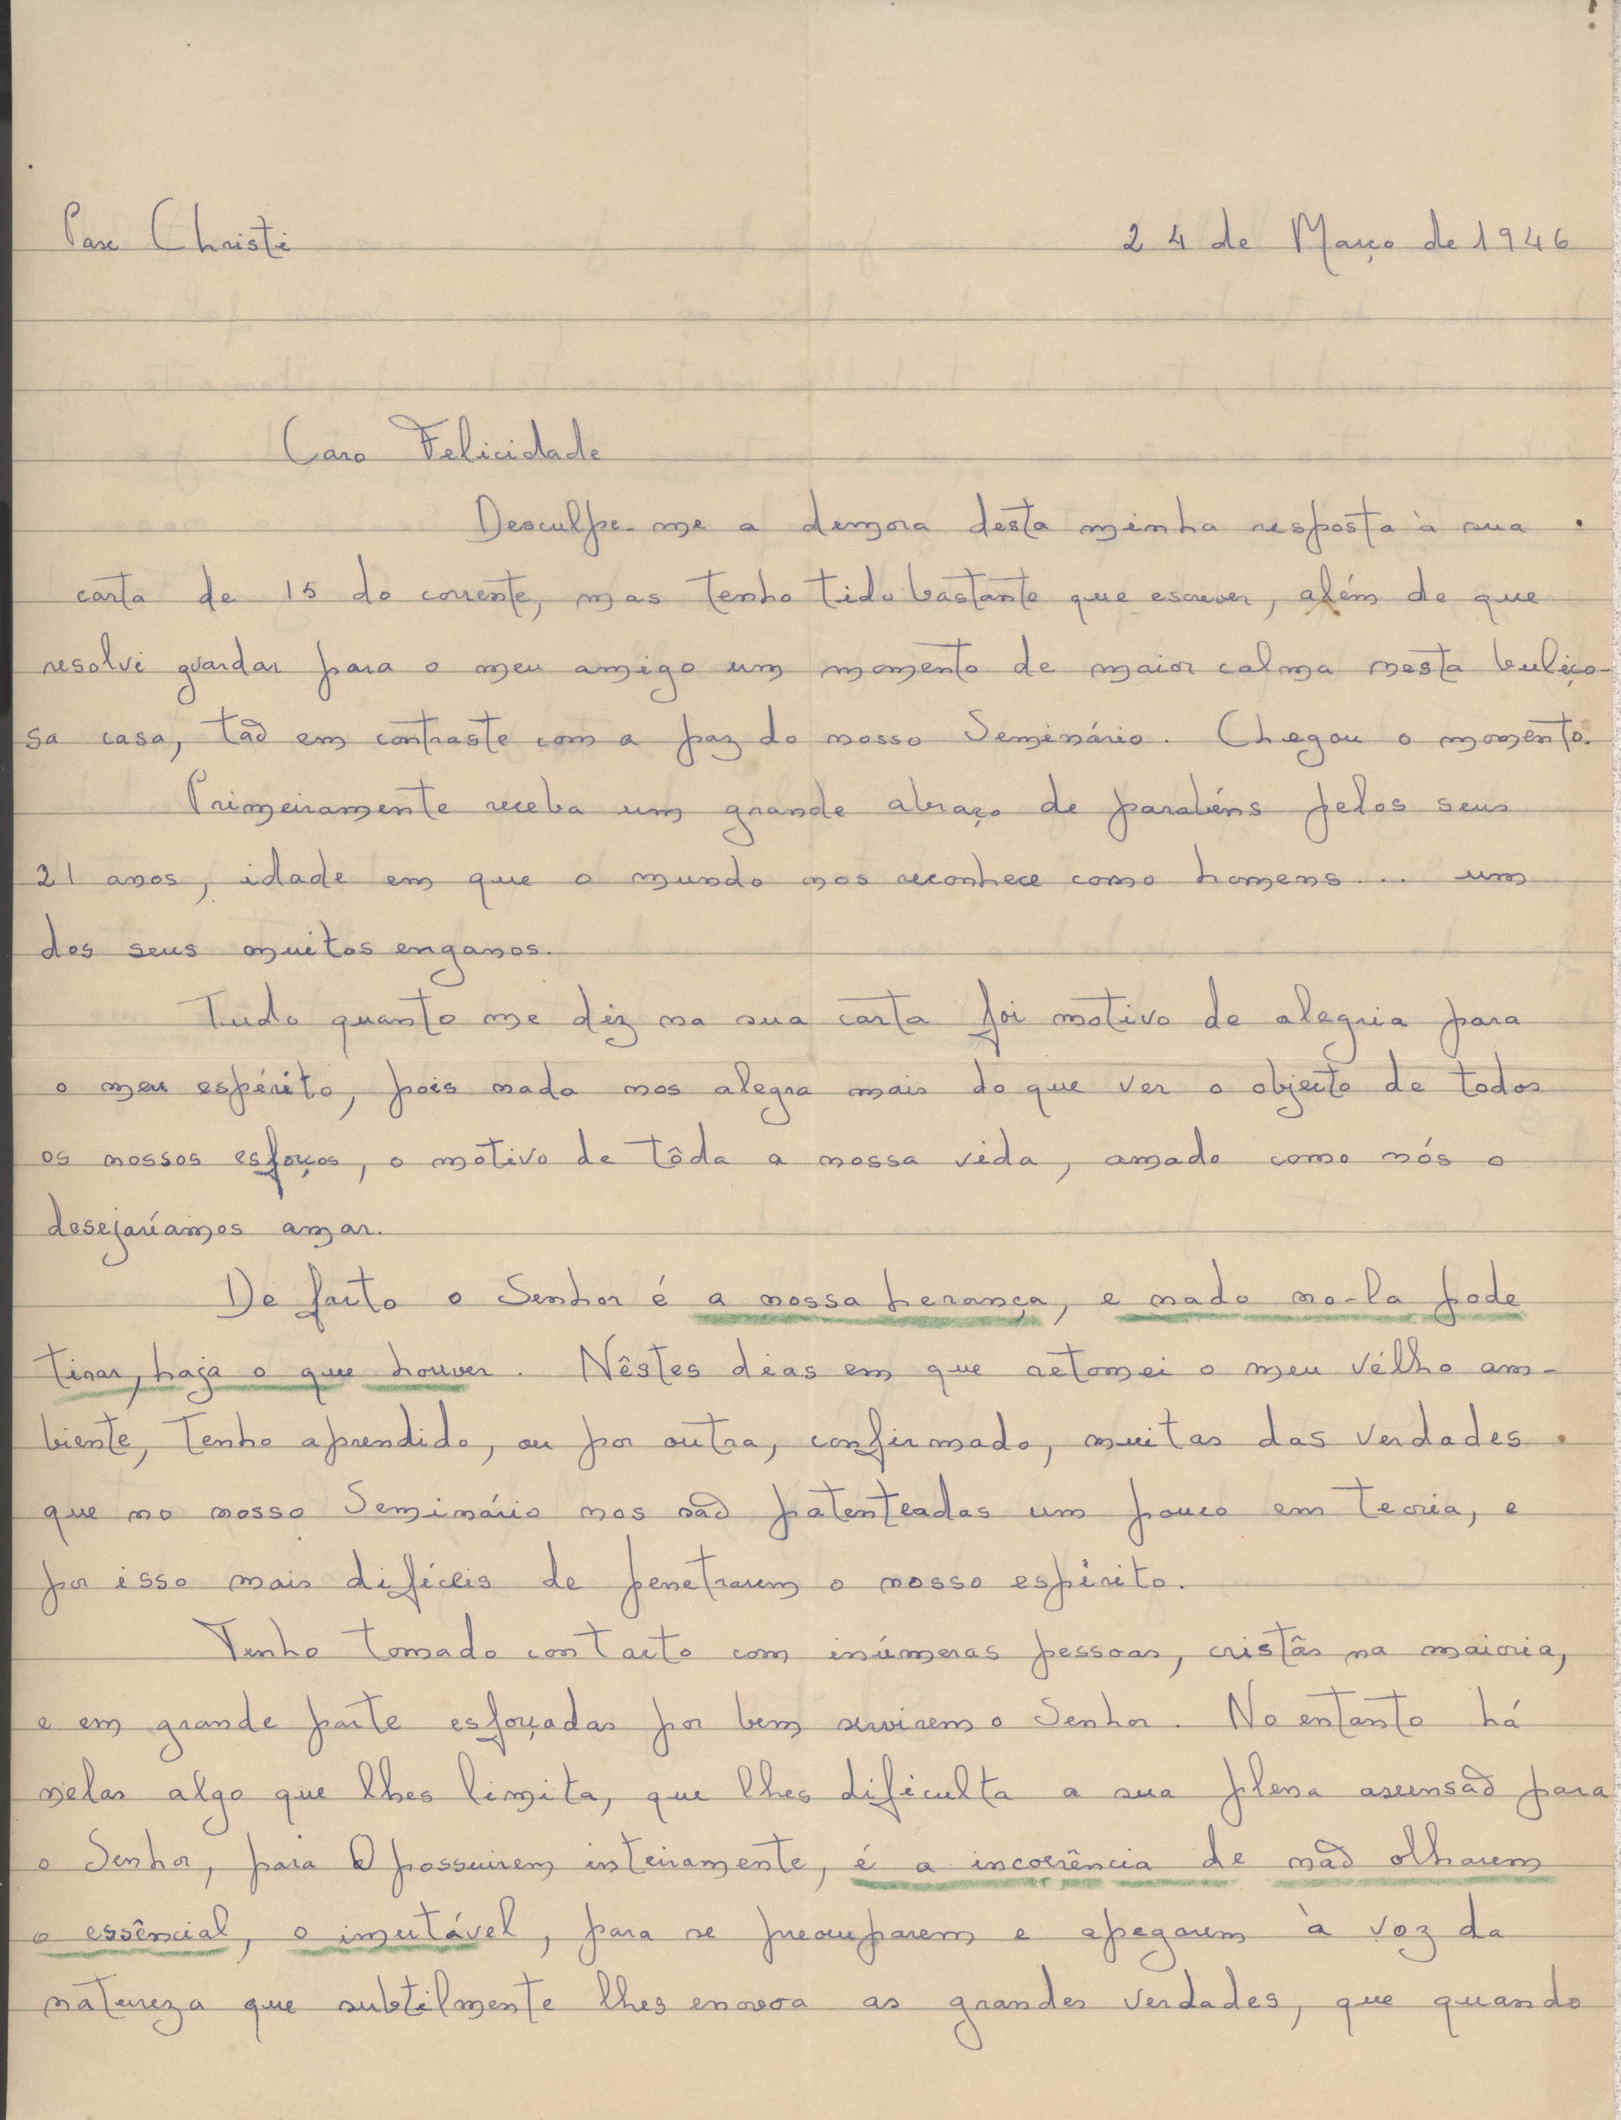 Pax Christi 24 de Março de 1946
Caro Felicidade
Desculpe-me a demora desta minha resposta à sua
carta de 15 do corrente, mas tenho tido bastante que escrever, além de que
resolvi guardar para o meu amigo um momento de maior calma nesta buliço-
sa casa, tão em contraste com a paz do nosso Seminário. Chegou o momento.
Primeiramente receba um grande abraço de parabéns pelos seus
21 anos, idade em que o mundo nos reconhece como homens... um
dos seus muitos enganos.
Tudo quanto me diz na sua carta foi motivo de alegria para
o meu espírito, pois nada nos alegra mais do que ver o objecto de todos
os nossos esforços, o motivo de tôda a nossa vida, amado como nós o
desejaríamos amar.
De facto o Senhor é a nossa herança, e nada no-la pode
tirar, haja o que houver. Nêstes dias em que retomei o meu vélho am-
biente, tenho aprendido, ou por outra, confirmado, muitas das verdades
que no nosso Seminário nos são patenteadas um pouco em teoria, e
por isso mais difíceis de penetrarem o nosso espírito.
Tenho tomado contacto com inúmeras pessoas, cristãs na maioria,
e em grande parte esforçadas por bem servirem o Senhor. No entanto há
nelas algo que lhes limita, que lhes dificulta a sua plena ascensão para
o Senhor, para O possuirem inteiramente, é a incoerência de não olharem
o essêncial, o imutável, para se preocuparem e apegarem à voz da
natureza que subtilmente lhes enovoa as grandes verdades, que quando